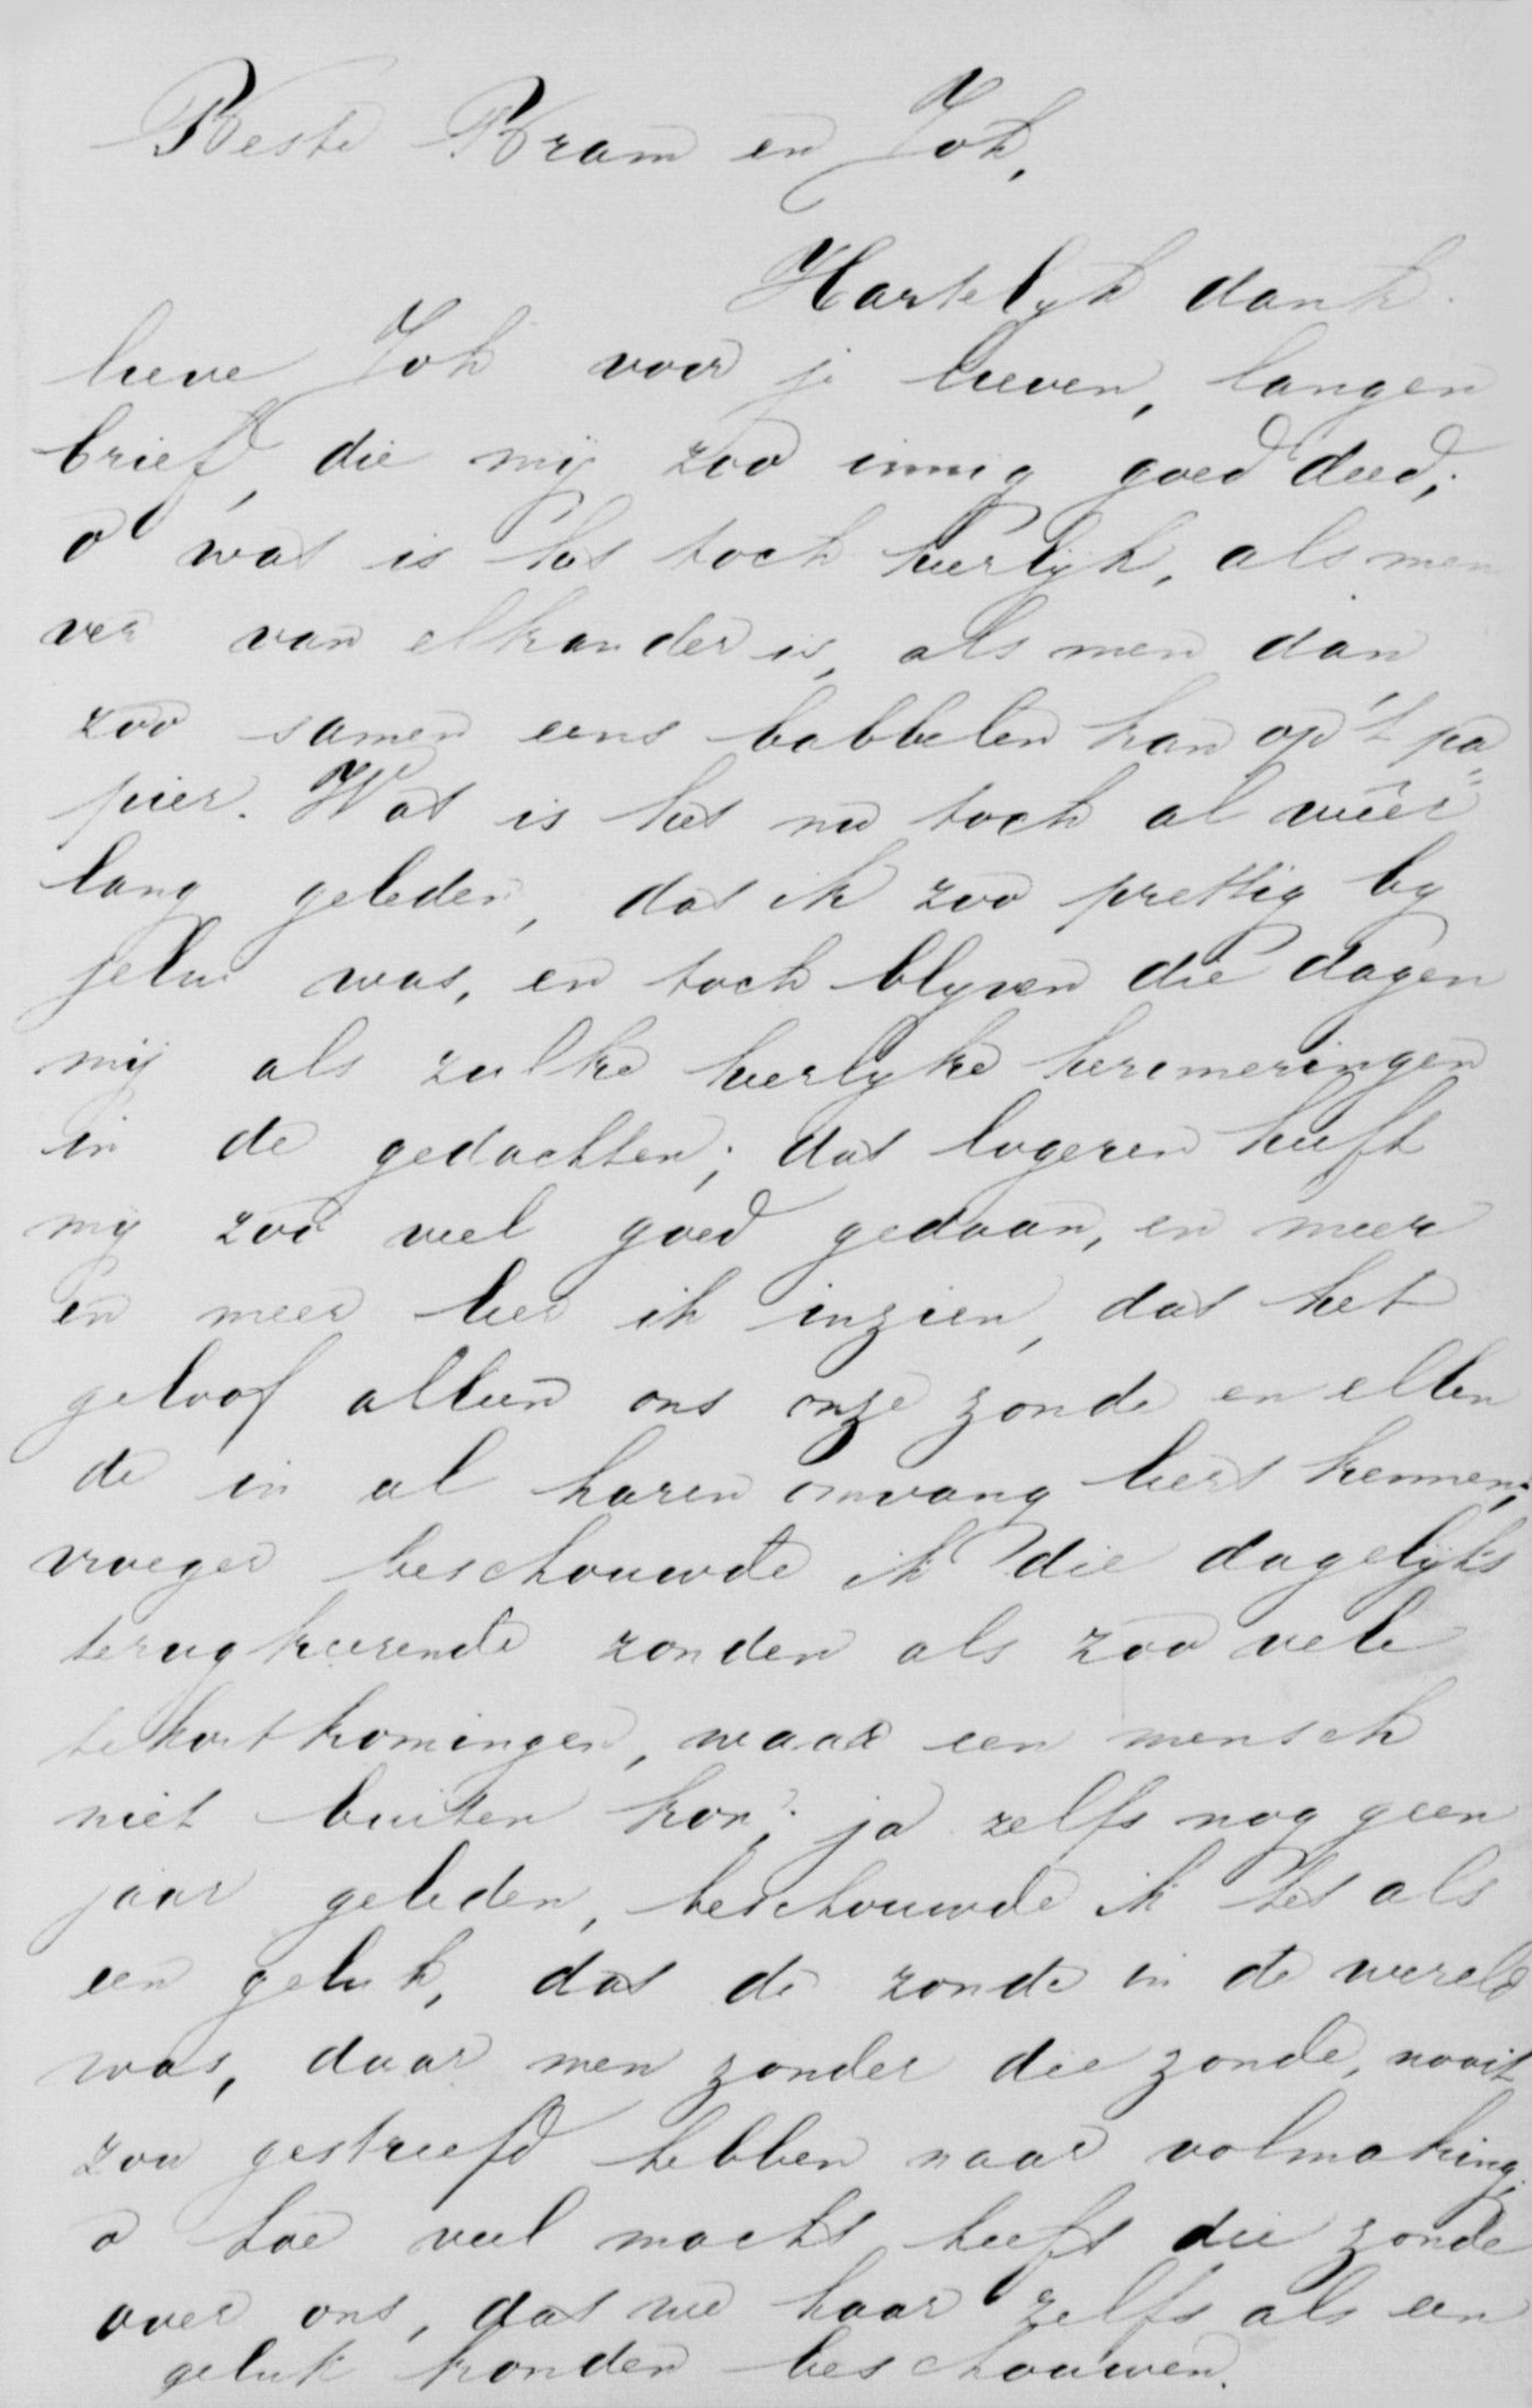 Beste Bram en Joh,
Hartelyk dank
lieve Joh voor je lieven, langen
brief, die mij zoo innig goed deed;
o wat is het toch heerlijk, als men
ver van elkander is, als men dan
zoo samen eens babbelen kan op 't pa
pier. Wat is het nu toch al weer
lang geleden, dat ik zoo prettig by
jelui was, en toch blyven die dagen
mij als zulke heerlyke herinneringen
in de gedachten; dat logeren heeft
mij zoo veel goed gedaan, en meer
en meer leer ik inzien, dat het
geloof alleen ons onze zonde en ellen
de in al haren omvang leert kennen;
vroeger beschouwde ik die dagelijks
terugkeerende zonden als zoo vele
tekortkomingen, waar een mensch
niet buiten kon; ja zelfs nog geen
jaar geleden, beschouwde ik het als
een geluk, dat de zonde in de wereld
was, daar men zonder die zonde, nooit
zou gestreefd hebben naar volmaking;
o hoe veel macht heeft die zonde
over ons, dat we haar zelfs als een
geluk konden beschouwen.